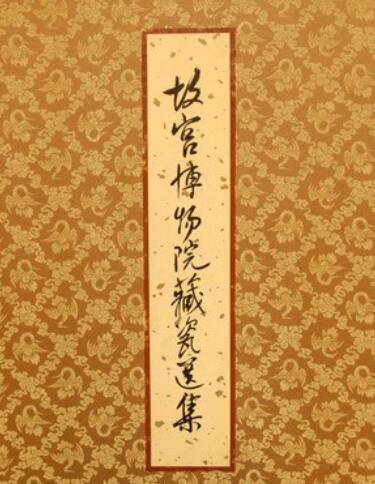 故宫博物院藏瓷选集